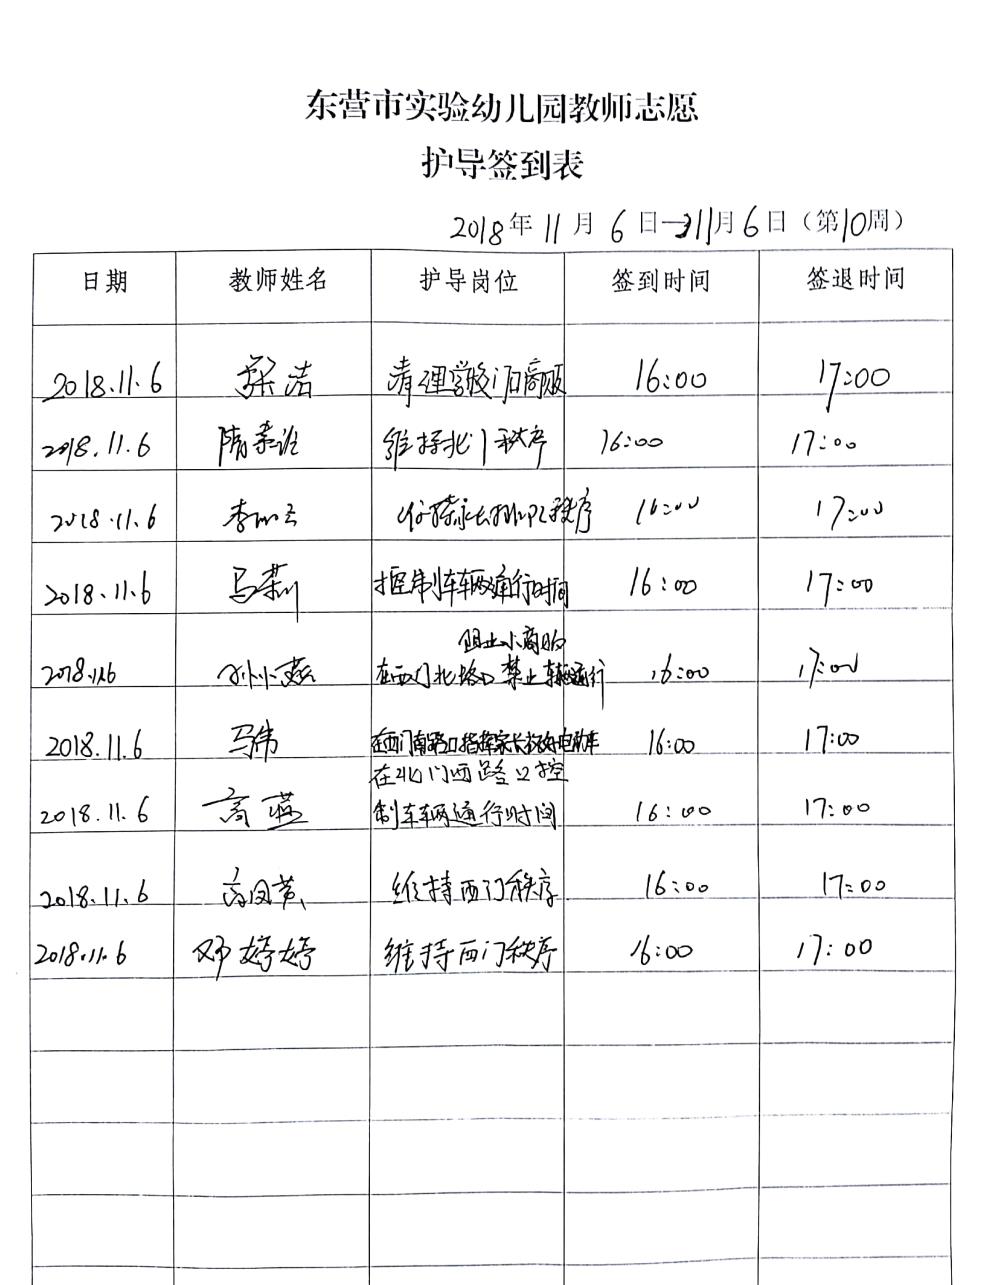 东营市实验幼儿园教师志愿
护导签到表
2018年11月6日—11月6日（第10周）
日期 教师姓名 护导岗位 签到时间 签退时间
2018.11.6 洁 清理学校门口商贩 16:00 17:00
2018.11.6 隋 维持北门秩序 16:00 17:00
2018.11.6 李 秩序 16:00 17:00
2018.11.6 马莉 控制车辆通行时间 16:00 17:00
阻止小商贩
2018.11.6 孙小燕 在西门北路口禁止车辆通行 16:00 17:00
2018.11.6 马伟 在西门南路口指挥家长 电动车 16:00 17:00
在北门西路口控
2018.11.6 高燕 制车辆通行时间 16:00 17:00
2018.11.6 高凤英 维持西门秩序 16:00 17:00
2018.11.6 邓婷婷 维持西门秩序 16:00 17:00